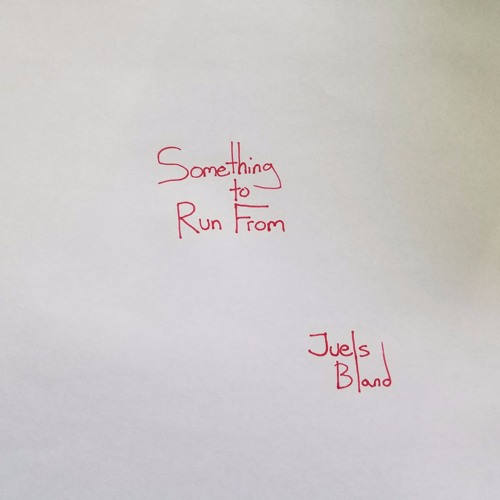 Something
to
Run From
Juels
Bland